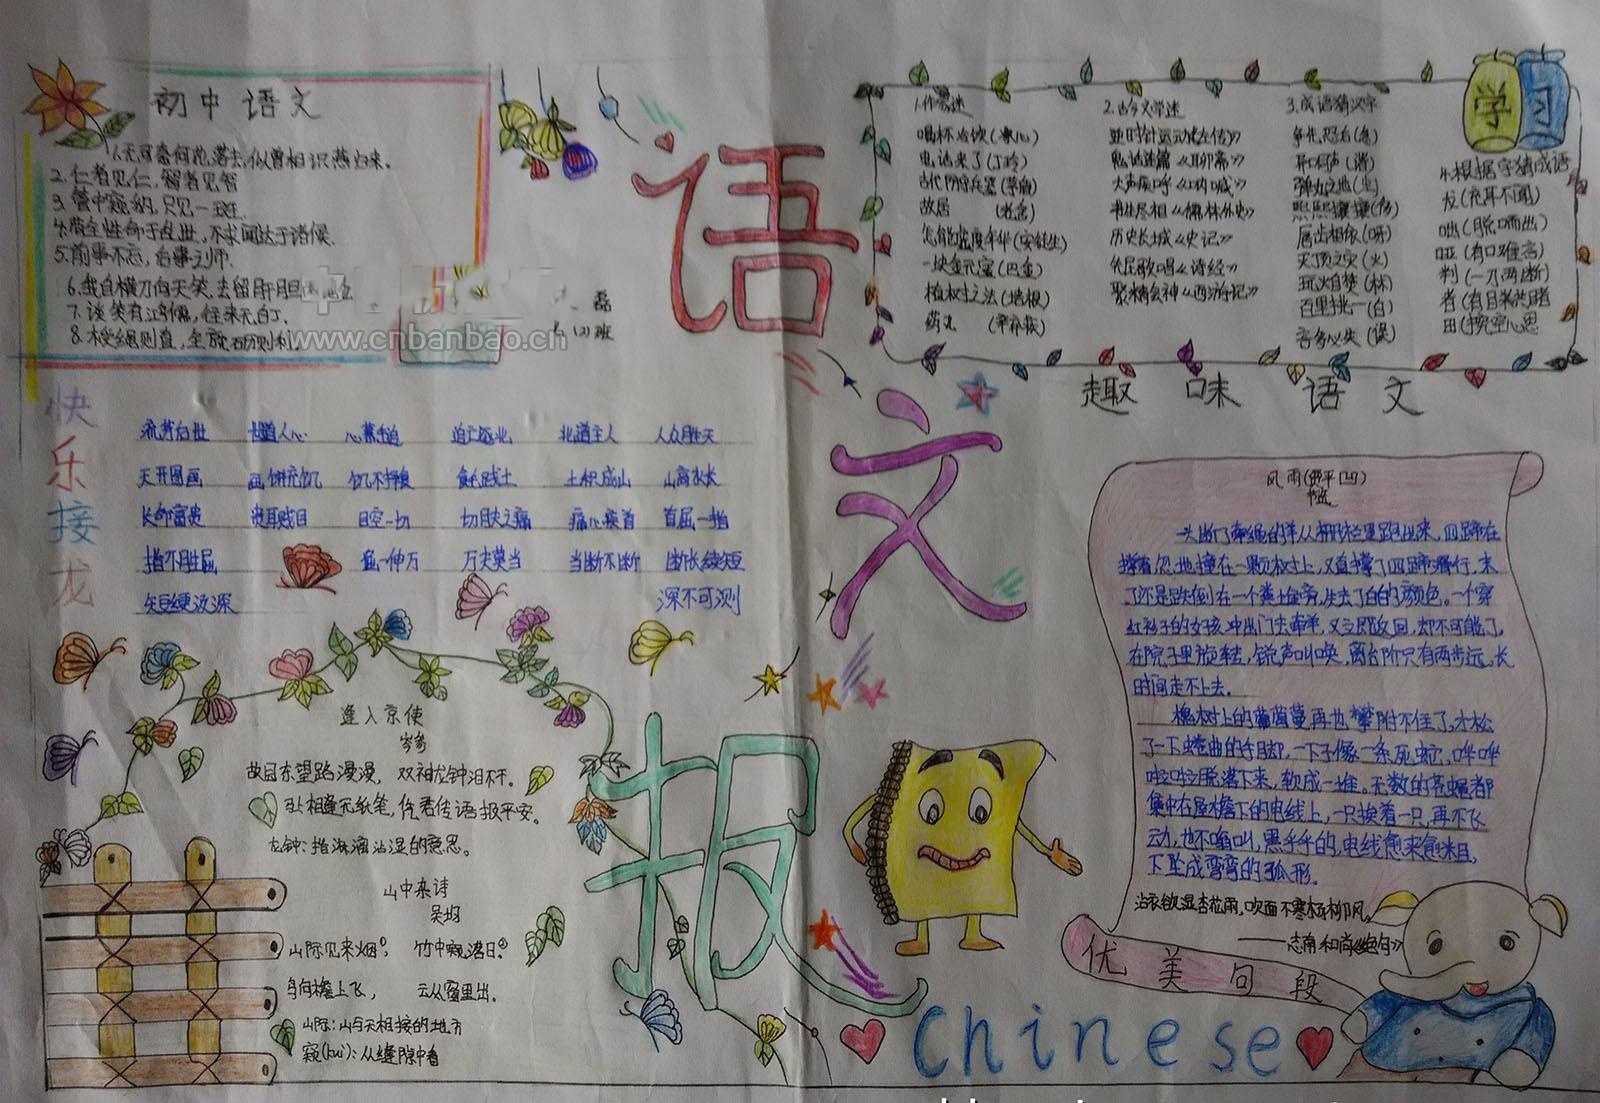 初中语文
1.无可奈何花落去,似曾相识燕归来.
2.仁者见仁,智者见智
3.管中窥豹,只见一斑.
4.苟全性命于乱世,不求闻达于诸候.
5.前事不忘,后事之师.
6.我自横刀向天笑,去留肝胆
7.谈笑有鸿儒,往来无白丁.
8.木受绳则直,金就砺则利
磊
(2)班
www.cnbanbao.cn
语文报
学习
1.作家迷
喝杯冷饮(冰心)
电话来了(丁玲)
古代防御兵器(茅盾)
故居 (老舍)
怎能虚度年华(安徒生)
一块金元宝(巴金)
植树之法(培根)
药
2.古今文学迷
逆时针运动《左传》
鬼话连篇《聊斋》
大声疾呼《呐喊》
书生尽相《儒林外史》
历史长城《史记》
先民歌唱《诗经》
聚精会神《西游记》
3.成语猜汉字
争先恐后(急)
异口同声(谐)
弹丸之地(尘)
熙熙攘攘(侈)
唇齿相依(呀)
灭顶之灾(火)
玩火自焚(林)
百里挑一(白)
言多必失(误)
4.根据字猜成语
龙(充耳不闻)
咄(脱口而出)
哑(有口难言)
判(一刀两断)
者(有目共睹
田(挖空心思
趣味语文
快乐接龙
流芳百世 世道人心 心慕手追 追亡逐北 北道主人 人众胜天
天开图画 画饼充饥 饥不择食 食毛践土 土积成山 山高水长
长命富贵 贵耳贱目 目空一切 切肤之痛 痛心疾首 首屈一指
指不胜屈 屈一伸万 万夫莫当 当断不断 断长续短
短绠汲深 深不可测
逢入京使
岑参
故园东望路漫漫, 双袖龙钟泪不干。
马上相逢无纸笔,凭君传语报平安。
龙钟:指淋漓沾湿的意思。
山中杂诗
吴均
山际见来烟①, 竹中窥落日②。
鸟向檐上飞, 云从窗里出。
山际:山与天相接的地方
窥(kuī):从缝隙中看
风雨(贾平凹)
一头断了牵绳的羊从栅栏里跑出来,四蹄在
撑着,忽地撞在一颗树上,又直撑了四蹄滑行,末
了还是跌倒在一个粪堆旁,失去了白的颜色。一个穿
红衫子的女孩冲出门去牵羊,又立即返回,却不可能了,
在院子里旋转,锐声叫唤,离台阶只有两步远,长
时间走不上去.
槐树上的葡萄蔓再也攀附不住了,才松
了一下蜷曲的手脚,一下子像一条死蛇,哗哗
啦啦脱落下来,软成一堆。无数的苍蝇都
集中在屋檐下的电线上,一只挨着一只,再不飞
动,也不嗡叫,黑乎乎的,电线愈来愈粗,
下坠成弯弯的弧形.
沾衣欲湿杏花雨,吹面不寒杨柳风。
——志南和尚《绝句》
优美句段
Chinese